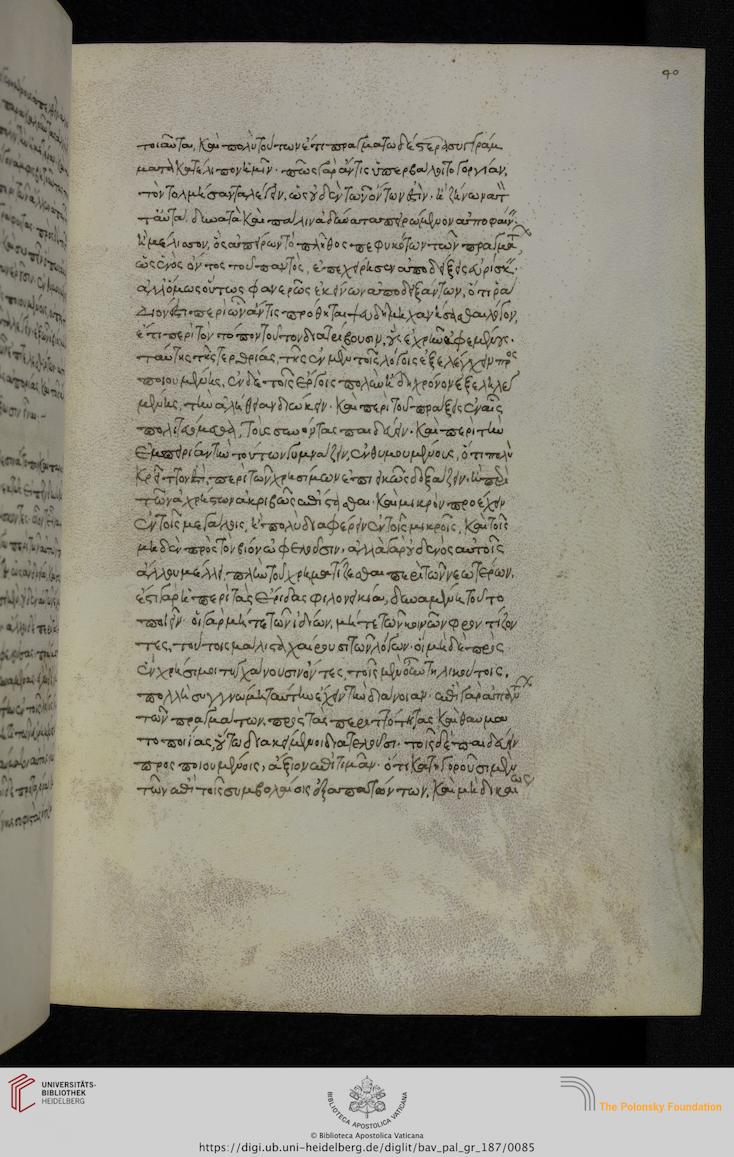 τοιαῦτα, καὶ πολὺ τούτων ἔτι πραγματωδέστερα συγγράμ
ματα κατέλιπον ἡμῖν· πῶς γὰρ ἄν τις ὑπερβάλοιτο Γοργίαν,
τὸν τολμήσαντα λέγειν, ὡς οὐδὲν τῶν ὄντων ἐστίν· ἢ ζήνωνα τ
ταὐτὰ δυνατὰ καὶ πάλιν ἀδύνατα πειρώμενον ἀποφαίν
ἢ μέλισσον, ὃς ἀπείρων τὸ πλῆθος πεφυκότων τῶν πραγμάτ
ὡς ἑνὸς ὄντος τοῦ παντὸς, ἐπεχείρησεν ἀποδείξεις εὑρίσκ
ἀλλ' ὅμως οὕτως φανερῶς ἐκείνων ἀποδειξάντων, ὅτι ῥᾴ
διον ἐστι περὶ ὧν ἄν τις πρόθηται ψευδῆ μηχανήσασθαι λόγον,
ἔτι περὶ τὸν τόπον τοῦτον διατρίβουσιν, οὓς ἐχρῆν ἀφεμένους
ταύτης τῆς τερθρίας, τῆς ἐν μὲν τοῖς λόγοις ἐξελέγχειν προς
ποιουμένης, ἐν δὲ τοῖς ἔργοις πολὺν ἤδη χρόνον ἐξεληλεγ
μένης, τὴν ἀλήθειαν διώκειν· καὶ περὶ τοῦ πράξεις ἐν αἷς
πολιτευόμεθα, τοὺς συνόντας παιδεύειν· καὶ περὶ τὴν
ἐμπειρίαν τὴν τούτων γυμνάζειν, ἐνθυμουμένους, ὅτι πολὺ
κρεῖττόν ἐστι, περὶ τῶν χρησίμων ἐπιεικῶς δοξάζειν· ἢ περὶ
τῶν ἀχρήστων ἀκριβῶς ἐπίστασθαι· καὶ μικρὸν προέχειν
ἐν τοῖς μεγάλοις, ἢ πολὺ διαφέρειν ἐν τοῖς μικροῖς, καὶ τοῖς
μηδὲν πρὸς τὸν βίον ὠφελοῦσιν· ἀλλὰ γὰρ οὐδενὸς αὐτοῖς
ἄλλου μέλει, πλὴν τοῦ χρηματίζεσθαι περὶ τῶν νεωτέρων,
ἔστι γὰρ ἡ περὶ τὰς ἔριδας φιλονεικία, δυναμένη τοῦτο
ποιεῖν· οἱ γὰρ μήτε τῶν ἰδίων, μήτε τῶν κοινῶν φροντίζον
τες, τούτοις μάλιστα χαίρουσι τῶν λόγων· οἳ μηδὲ πρὸς
ἓν χρήσιμοι τυγχάνουσιν ὄντες, τοῖς μὲν οὖν τηλικούτοις,
πολλὴ συγγνώμη ταύτην ἔχειν τὴν διάνοιαν· ἐπὶ γὰρ ἁπάντ
τῶν πραγμάτων, πρὸς τὰς περιττότητας καὶ θαυμα
τοποιίας, οὕτω διακείμενοι διατελοῦσι· τοῖς δὲ παιδεύειν
προσποιουμένοις, ἄξιον ἐπιτιμᾶν· ὅτι κατηγοροῦσι μὲν
τῶν ἐπὶ τοῖς συμβολαίοις ἐξαπατώντων, καὶ μὴ δικαί
ως
90
UNIVERSITÄTS-
BIBLIOTHEK
HEIDELBERG
BIBLIOTECA APOSTOLICA VATICANA
The Polonsky Foundation
© Biblioteca Apostolica Vaticana
https://digi.ub.uni-heidelberg.de/diglit/bav_pal_gr_187/0085